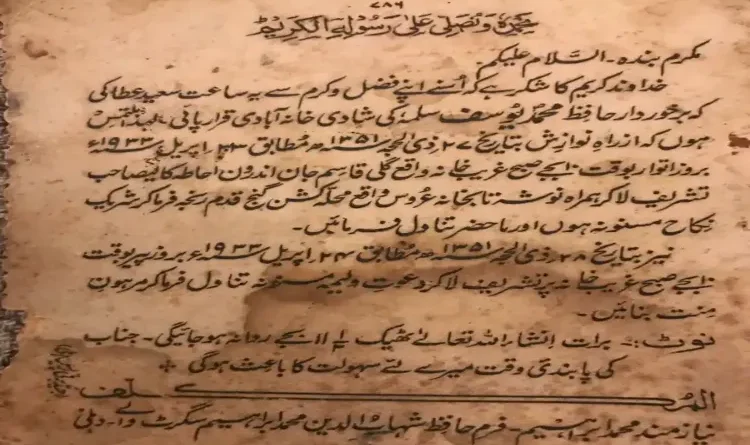 ۷۸۶
نحمدہ ونصلی علیٰ رسولہ الکریم
مکرم بندہ۔ السلام علیکم۔
خداوند کریم کا شکر ہے کہ اُسنے اپنے فضل وکرم سے یہ ساعت سعید عطا کی
کہ برخوردار حافظ محمد یوسف سلمہٗ کی شادی خانہ آبادی قرار پائی۔ لہٰذا ملتمس
ہوں کہ از راہ نوازش بتاریخ ۲۷ ذی الحجہ ۱۳۵۱ھ مطابق ۲۳ اپریل ۱۹۳۳ء
بروز اتوار بوقت ۱۰ بجے صبح غریب خانہ واقع گلی قاسم جان اندرون احاطہ کالے صاحب
تشریف لاکر ہمراہ نوشہ تا بخانہ عروس واقع محلہ کشن گنج قدم رنجہ فرماکر شریک
نکاح مسنونہ ہوں اور ماحضر تناول فرمائیں۔
نیز بتاریخ ۲۸ ذی الحجہ ۱۳۵۱ھ مطابق ۲۴ اپریل ۱۹۳۳ء بروز پیر بوقت
۱۰ بجے صبح غریب خانہ پر تشریف لاکر دعوت ولیمہ مسنونہ تناول فرماکر مرہون
منت بنائیں۔
نوٹ:۔ برات انشاء اللہ تعالےٰ ٹھیک ۱۱½ بجے روانہ ہوجائیگی۔ جناب
کی پابندی وقت میرے لئے سہولت کا باعث ہوگی
المکلف
نیازمند محمد ابراہیم۔ فرم حافظ شہاب الدین محمد ابراہیم سگرٹ والے۔ دہلی